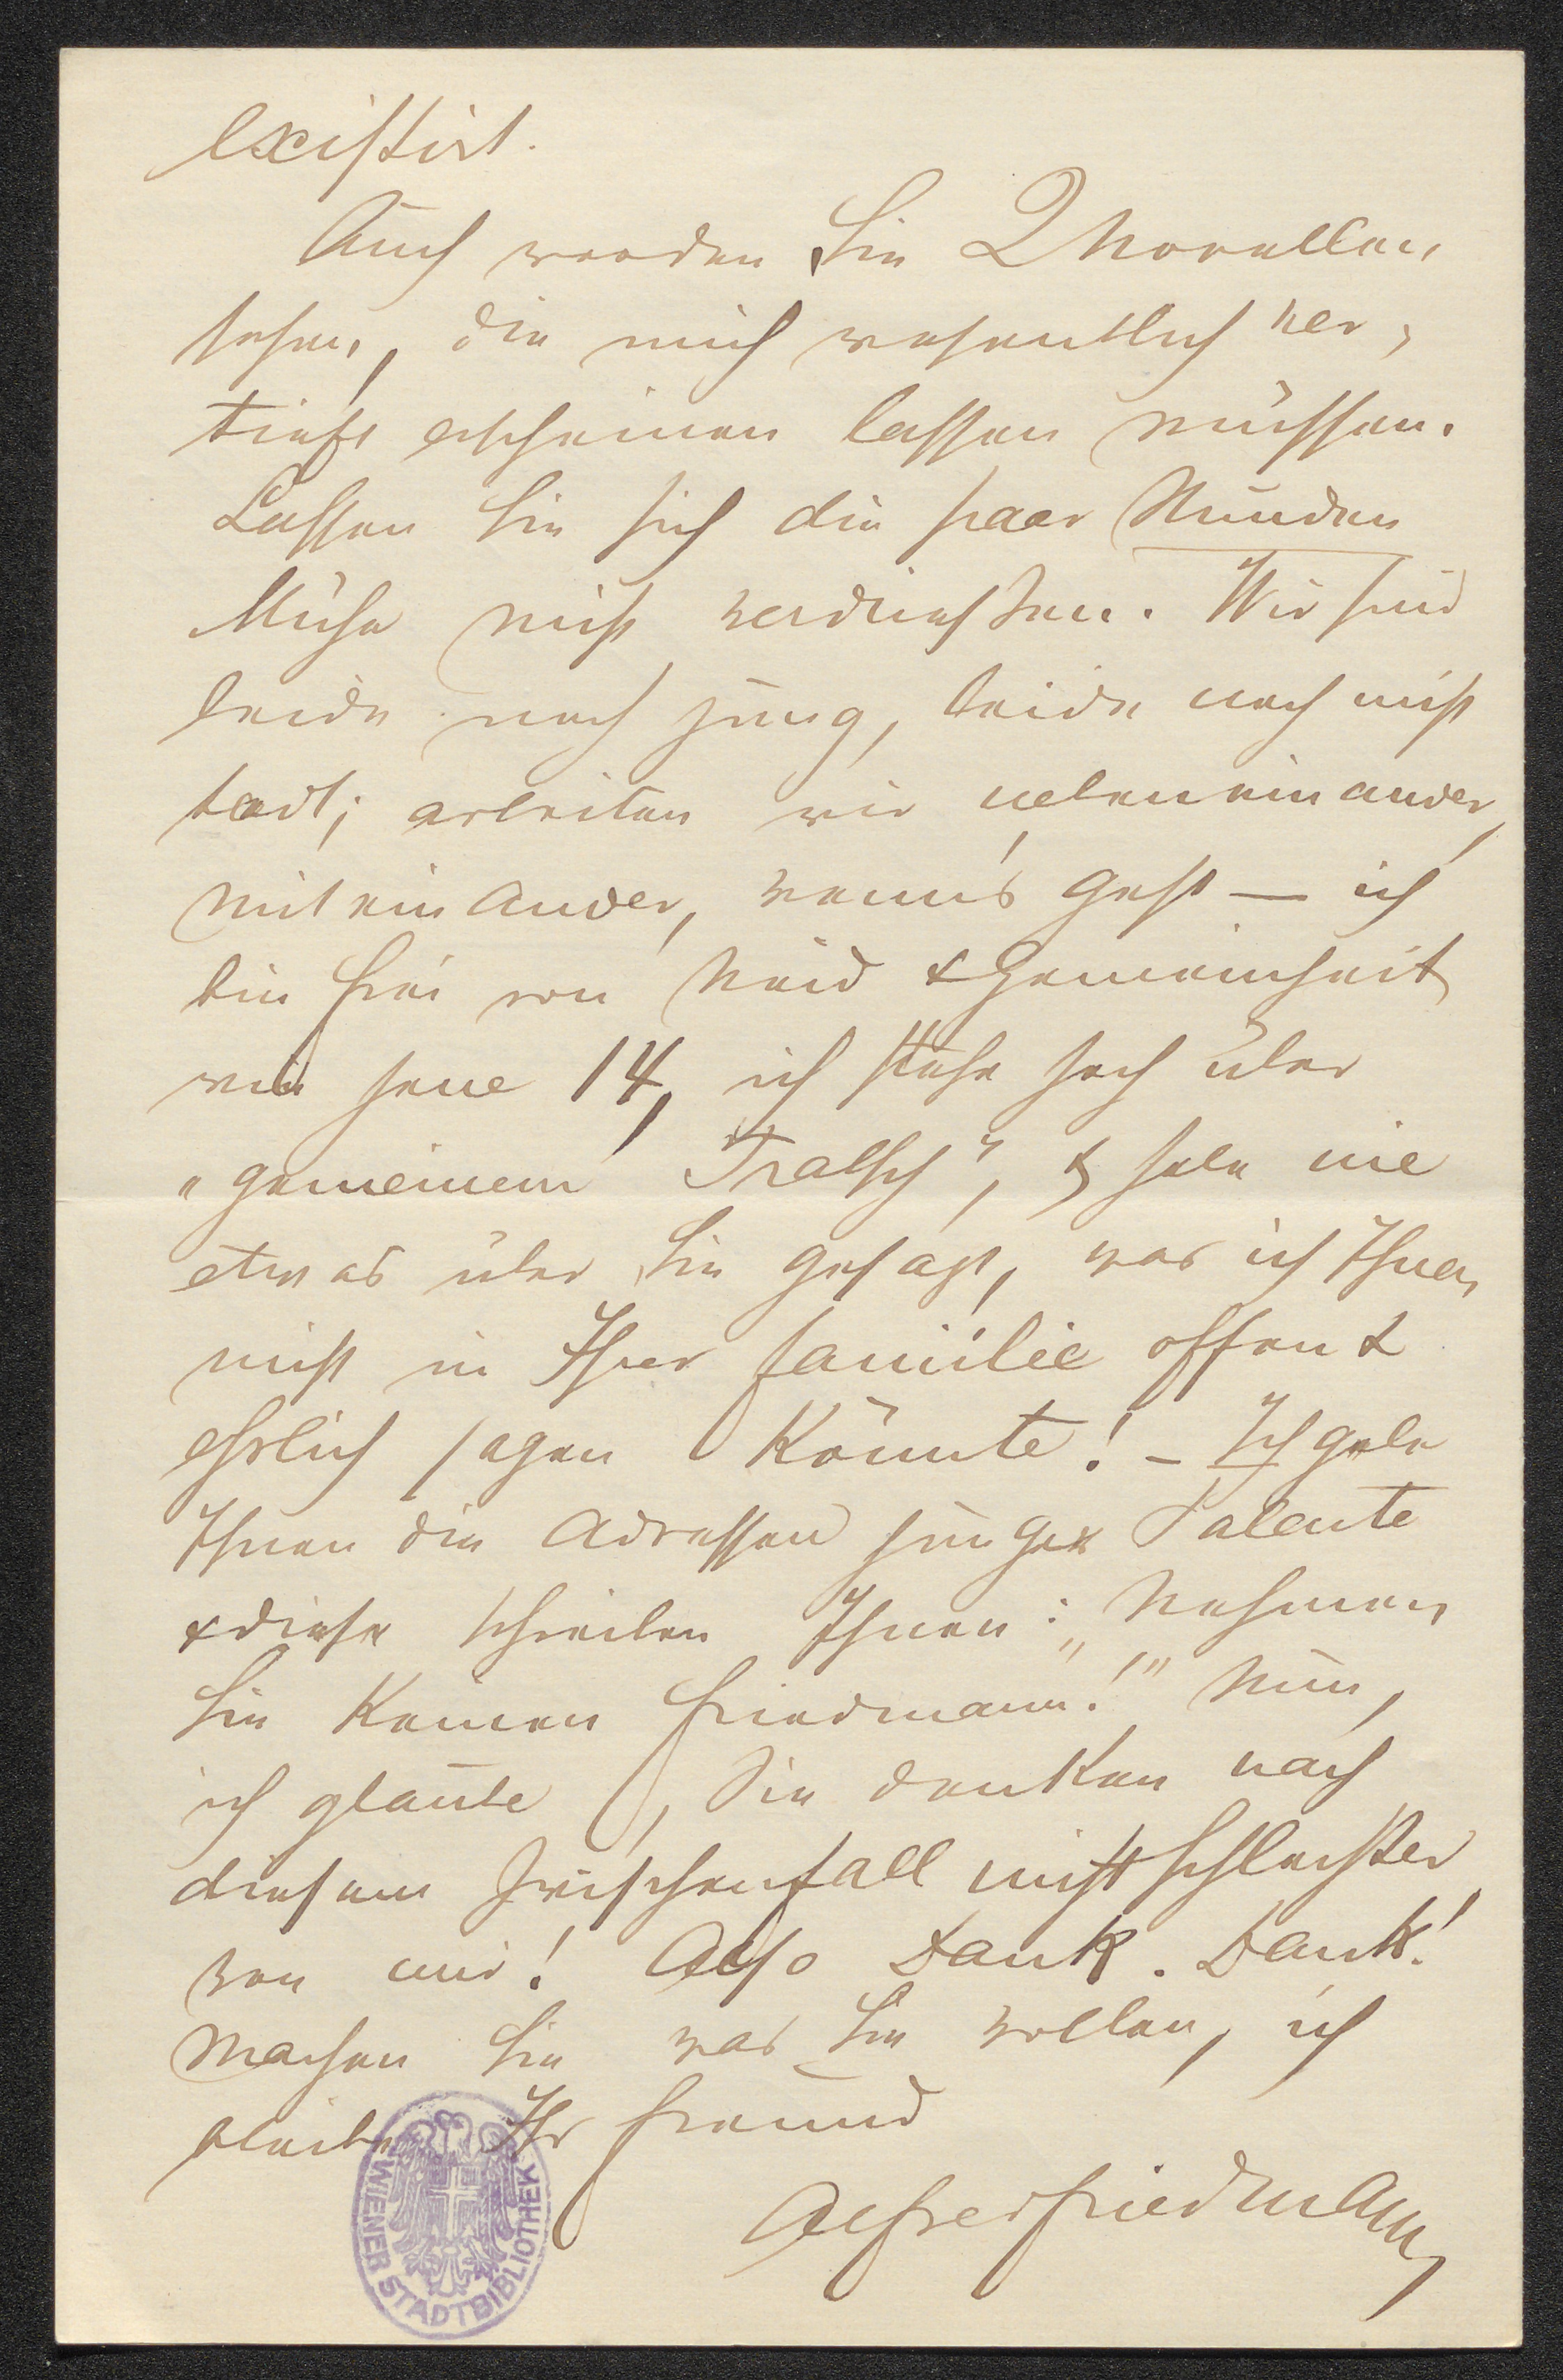 existirt.
Auch werden Sie 2 Novellen
sehen, die mich wesentlich ver-
tieft erscheinen lassen müssen.
Lassen Sie sich die paar Stunden
Mühe nicht verdrießen. Wir sind
beide noch jung, beide noch nicht
todt; arbeiten wir nebeneinander,
miteinander, wenns geht — ich
bin frei von Neid & Gemeinheit
wie jene 14, ich stehe hoch über
"gemeinem Tratsch", & habe nie
etwas über Sie gesagt, was ich Ihnen
nicht in Ihrer Familie offen &
ehrlich sagen könnte! – Ich gebe
Ihnen die Adressen junger Talente
& diese schreiben Ihnen: „Nehmen
Sie keinen Friedmann!" Nun,
ich glaube, Sie denken nach
diesem Zwischenfall nicht schlechter
von mir! Also Dank. Dank!
Machen Sie was Sie wollen, ich
bleibe Ihr Freund
Alfred Friedmann
WIENER STADTBIBLIOTHEK